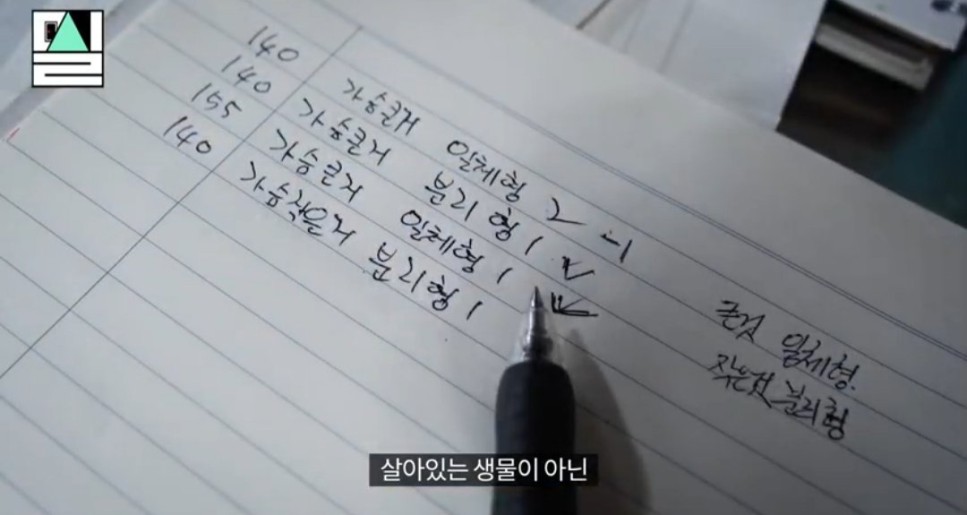 140 가슴큰거 일체형 2 -1
140 가슴큰거 분리형 1
155 가슴큰거 일체형 1
140 가슴작은거 분리형 1
큰것 일체형.
작은것 분리형
살아있는 생물이 아닌